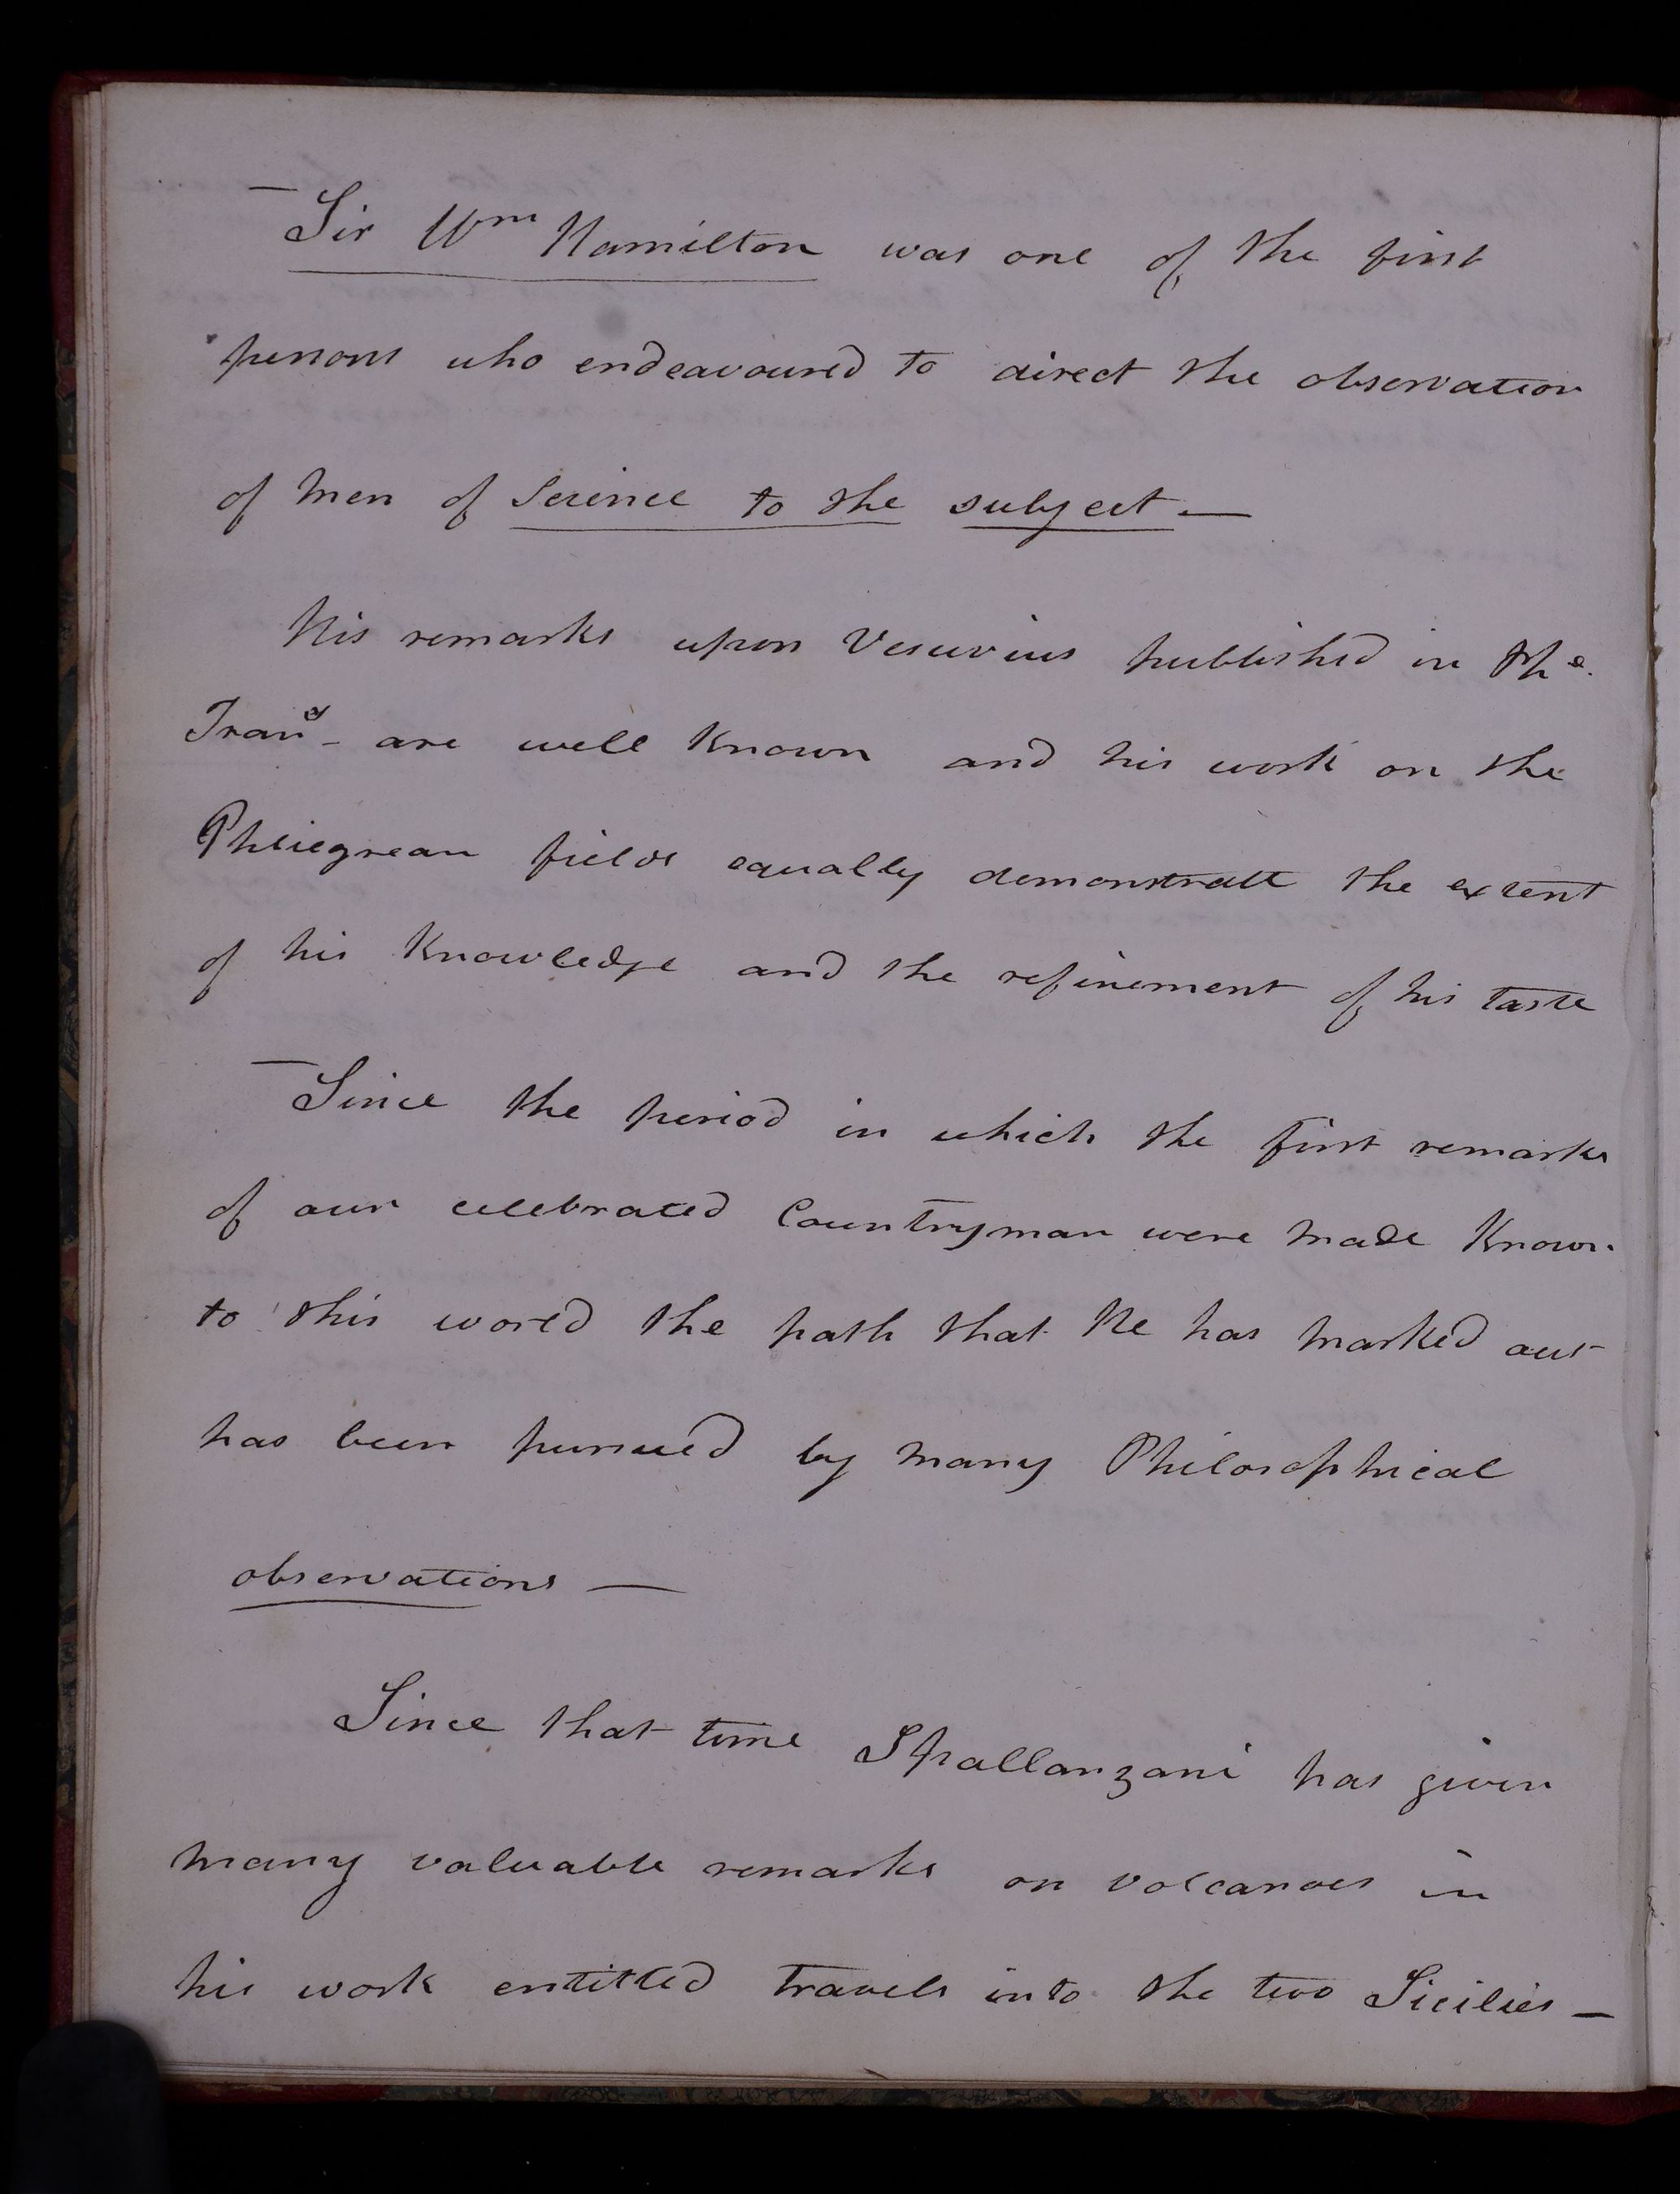 — Sir Wm Hamilton was one of the first
persons who endeavoured to direct the observation
of men of Science to the subject. —
His remarks upon Vesuvius published in Phe.
Trans - are well Known and his work on the
Phliegrean fields equally demonstrate the extent
of his Knowledge and the refinement of his taste
— Since the period in which the first remarks
of our celebrated Countryman were made Known
to this world the path that He has marked out
has been pursued by many Philosophical
observations —
Since that time Spallanzani has given
many valuable remarks on volcanoes in
his work entitled travels into the two Sicilies —